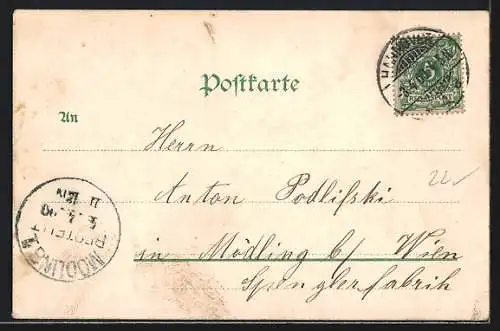 Postkarte
An
Herrn
Anton Podlifski
in Mödling b/ Wien
Spenglerfabrik
22
MÖDLING
BESTELLT
HANNOVER